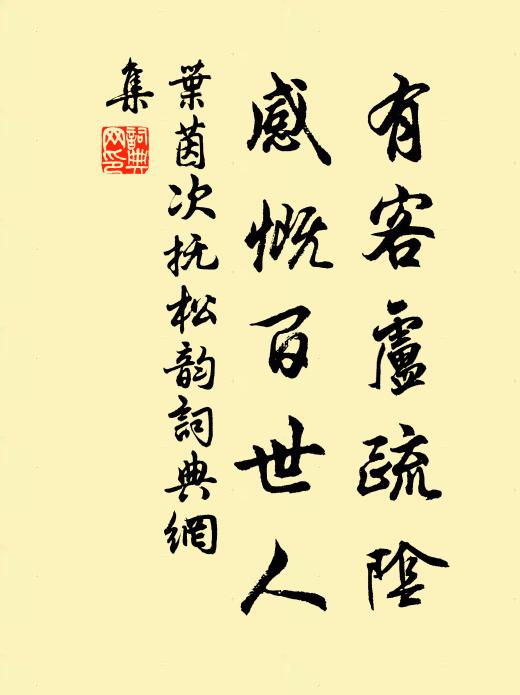 有客廬疏陰
感慨百世人
葉茵次抚松韵詞典網
集
詞典網印